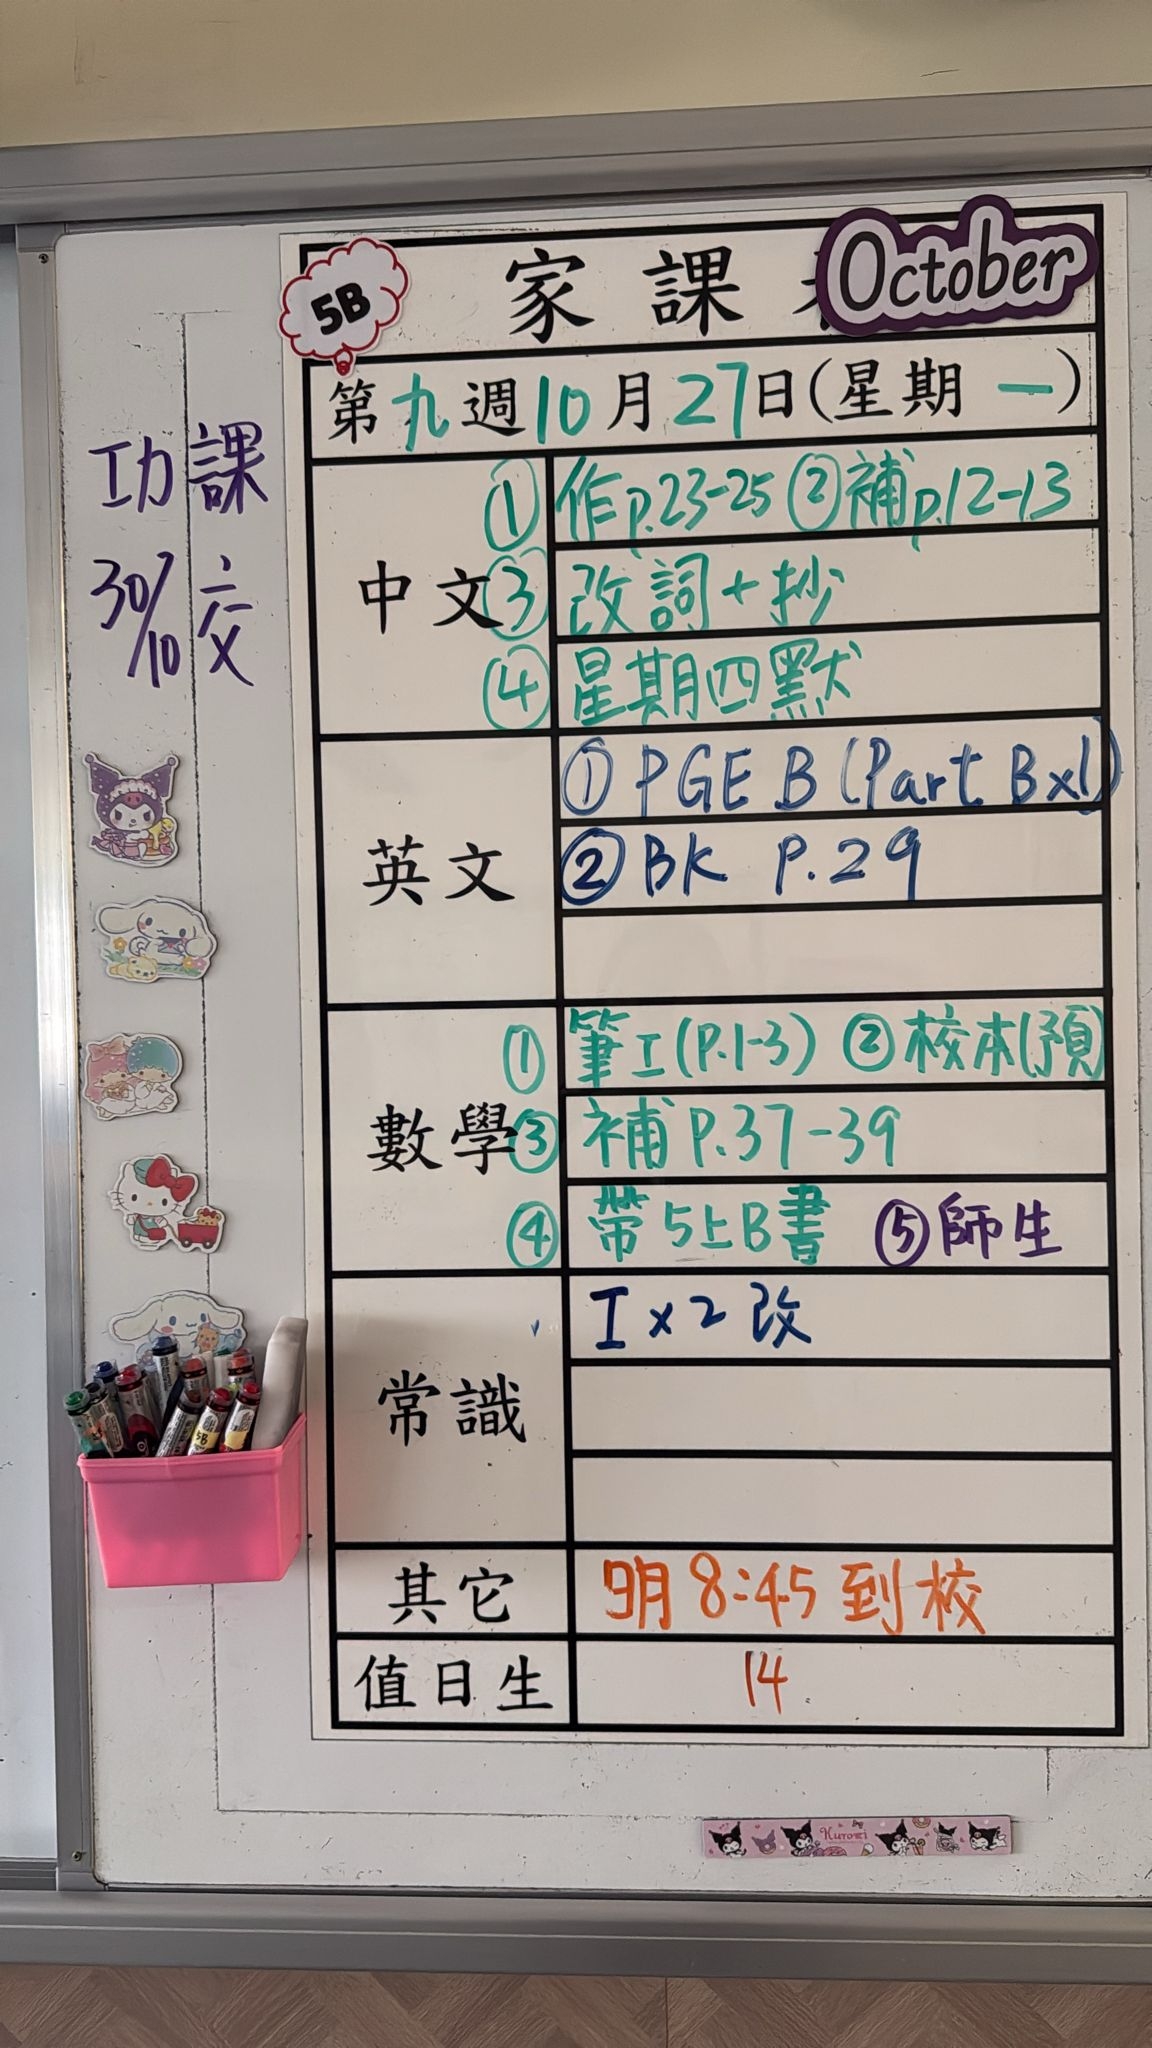 5B
家課
October
第九週10月27日(星期一)
功課
30/10交
中文
①作p.23-25 ②補p.12-13
③改詞+抄
④星期四默
英文
①PGE B (Part Bx1)
②BK P.29
數學
①筆工(P.1-3) ②校本(預)
③補P.37-39
④帶5上B書 ⑤師生
常識
工x2改
其它
明8:45到校
值日生
14
5B
Kuromi